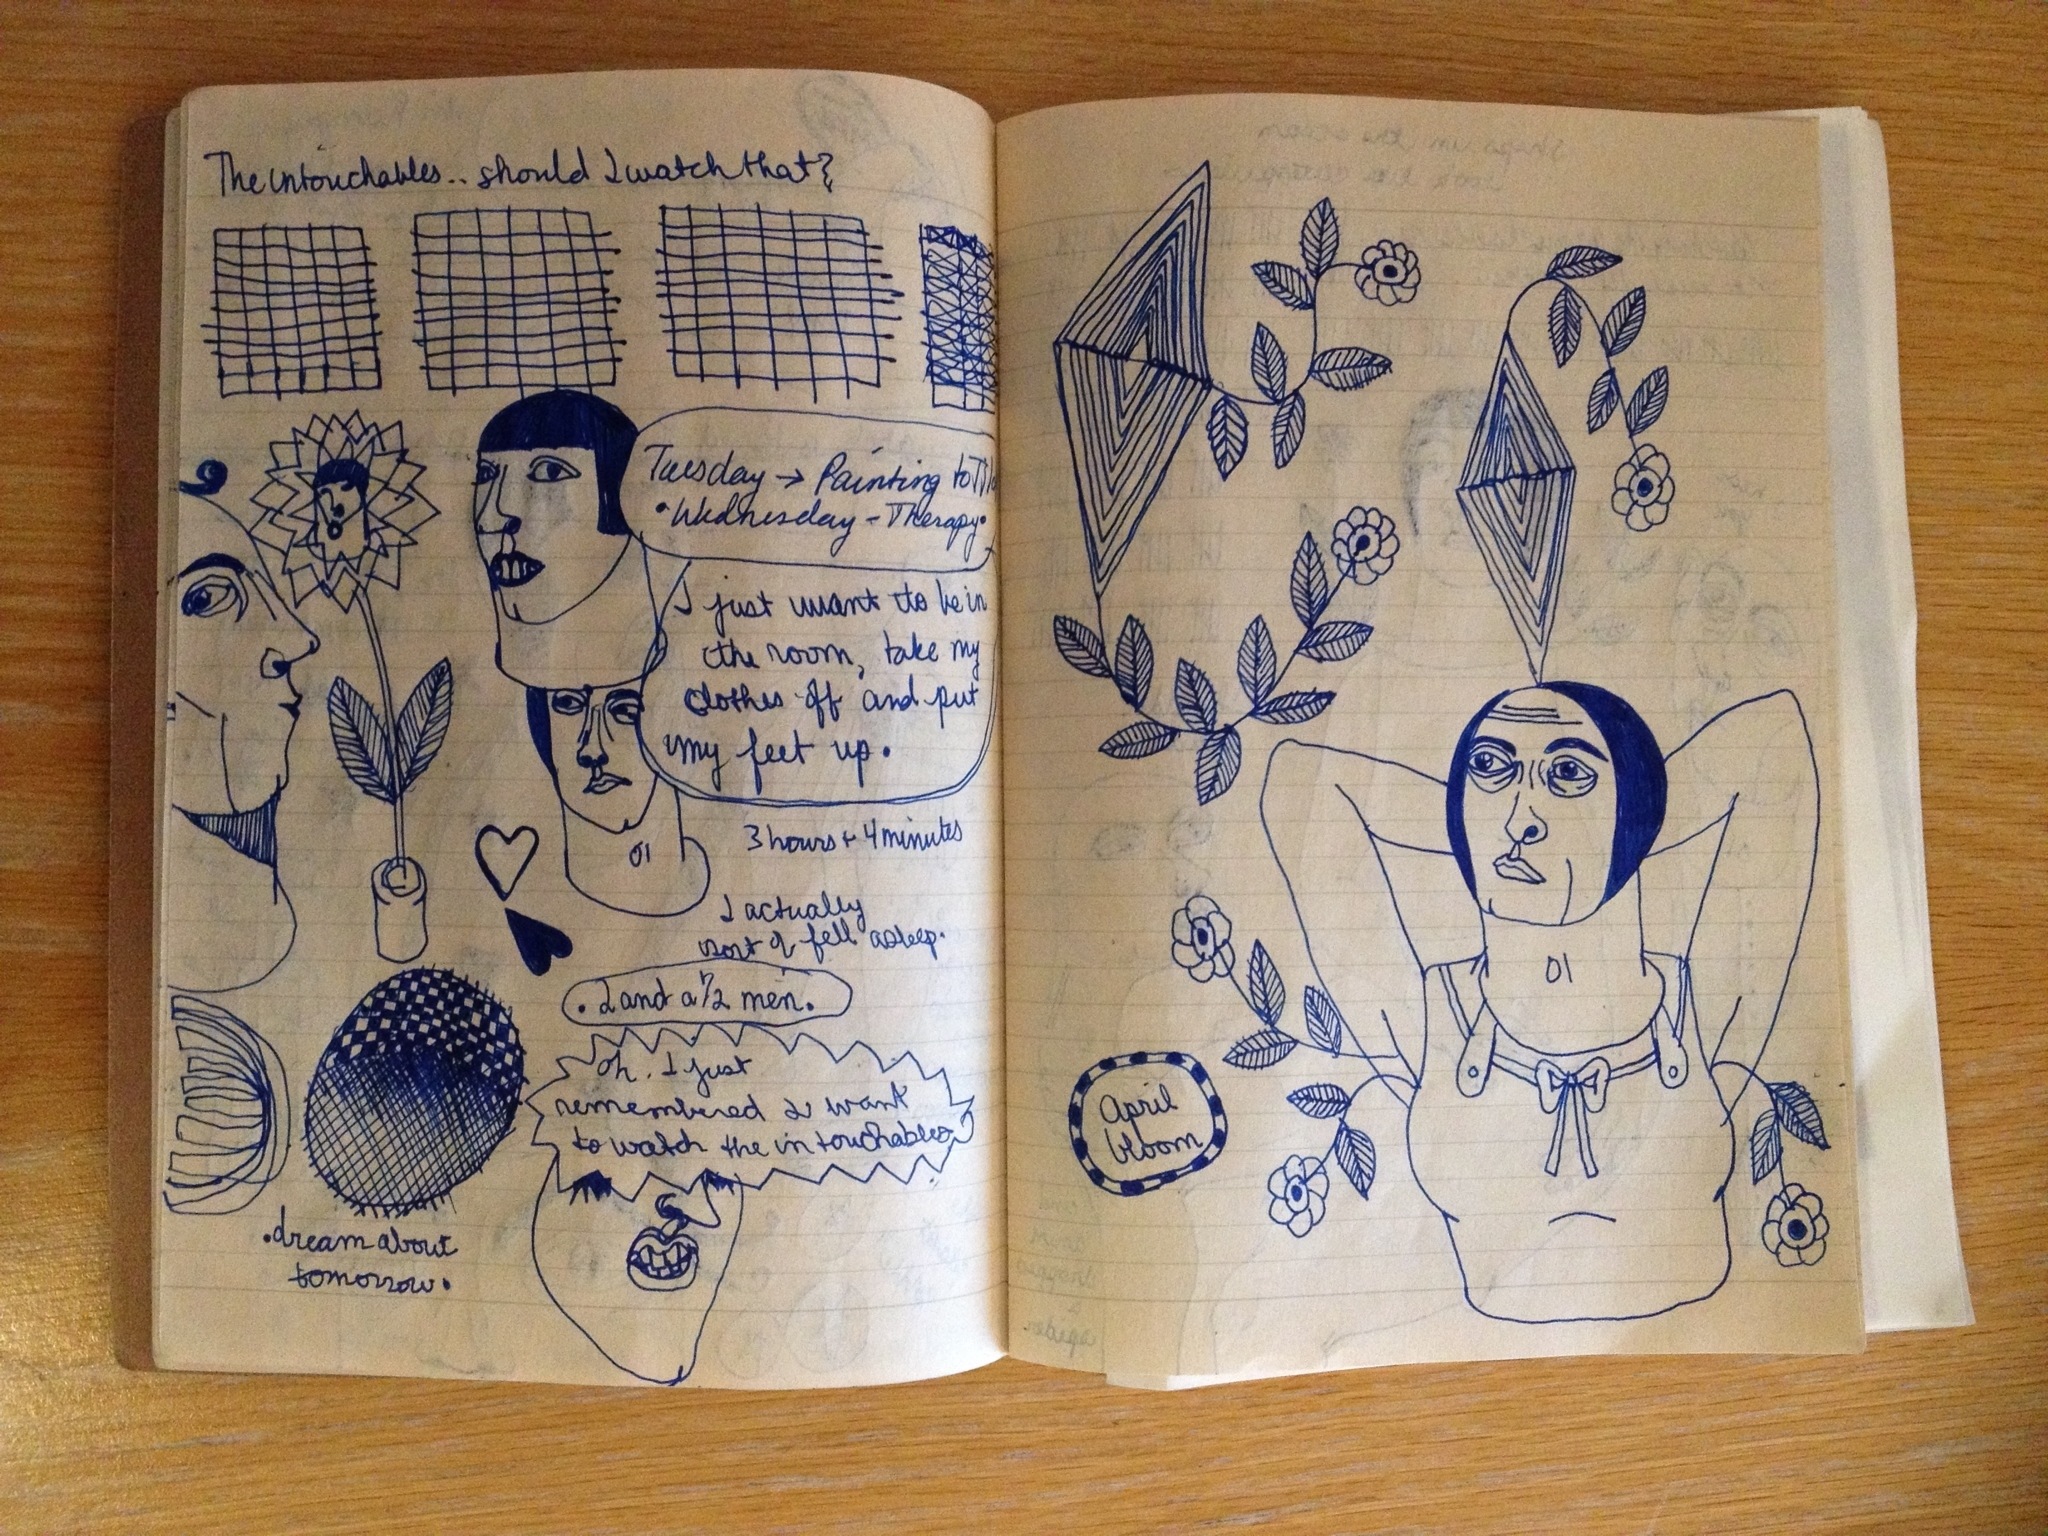 The intouchables.. should I watch that?
Tuesday → Painting to
• Wednesday - Therapy•
I just want to be in
the room, take my
clothes off and put
my feet up.
01
3 hours + 4 minutes
I actually
sort of fell asleep.
• 2 and a 1/2 men.
Oh. I just
remembered I want
to watch the intouchables
•dream about
tomorrow•
01
April
bloom